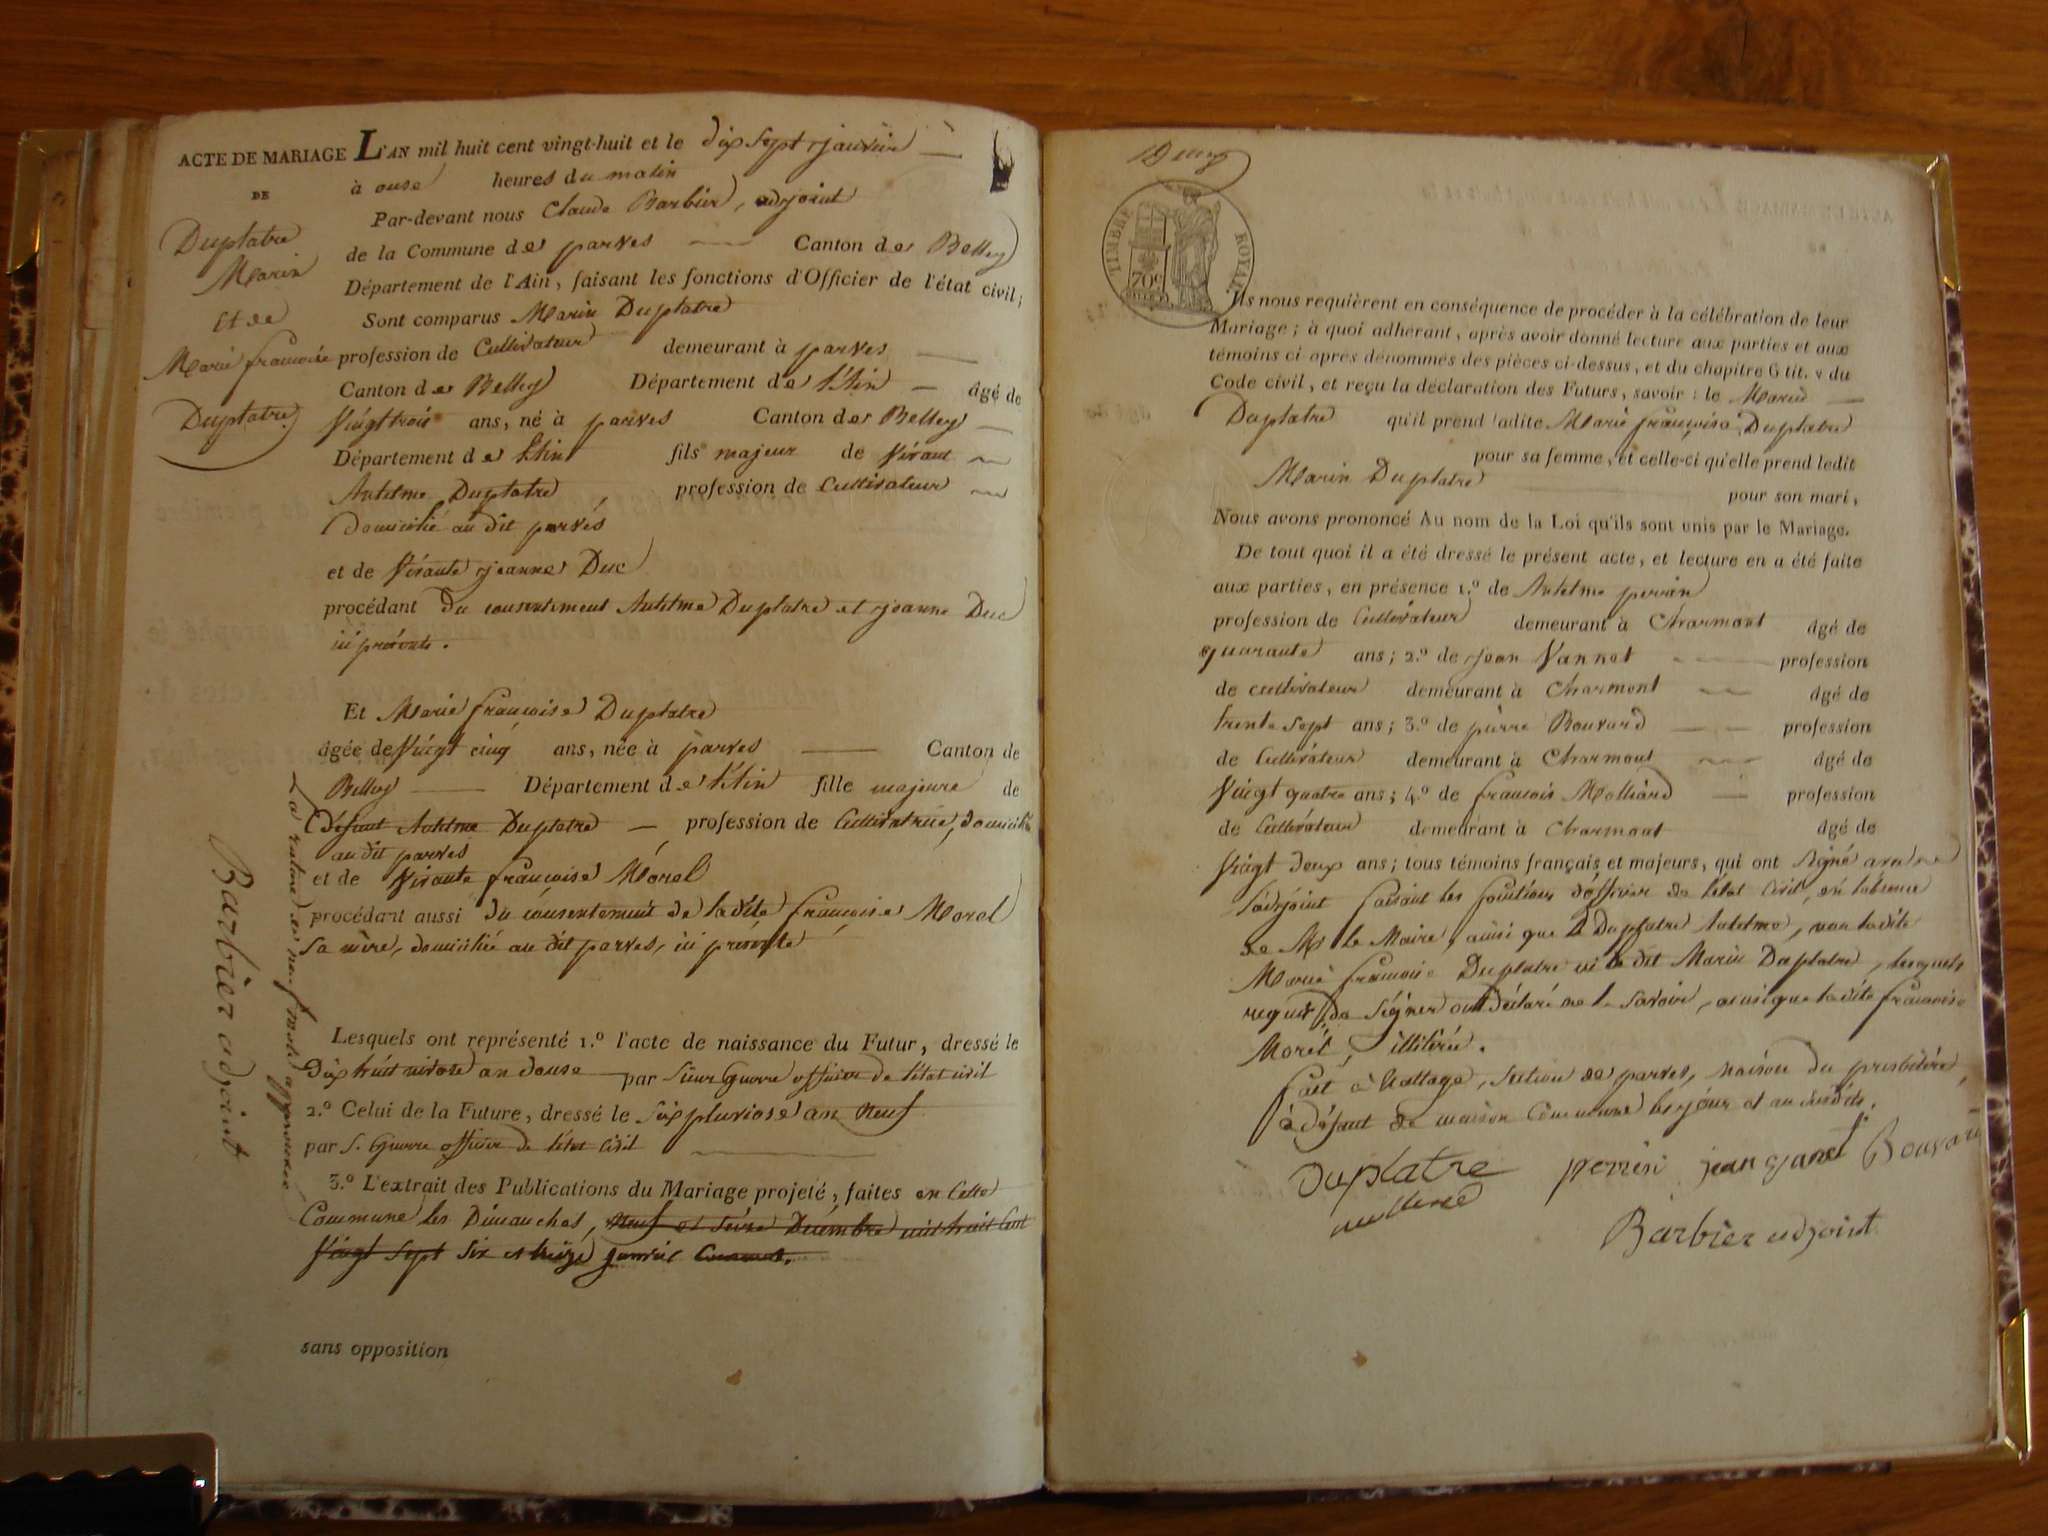 ACTE DE MARIAGE L'AN mil huit cent vingt-huit et le dix sept janvier
DE
Duplatre
Marin
Et de
Marie françoise
Duplatre
à onse heures du matin
Par-devant nous Claude Barbier, adjoint
de la Commune de parves Canton de Belley
Département de l'Ain, faisant les fonctions d'Officier de l'état civil;
Sont comparus Marin Duplatre
profession de Cultivateur demeurant à parves
Canton de Belley Département de l'Ain âgé de
Vingt trois ans, né à parves Canton de Belley
Département de l'Ain fils majeur de Vivant
Antelme Duplatre profession de Cultivateur
Domicilié au dit parves
et de Vivante jeanne Duc
procédant du consentement Antelme Duplatre et jeanne Duc
ici présents.
Et Marie françoise Duplatre
âgée de Vingt cinq ans, née à parves Canton de
Belley Département de l'Ain fille majeure de
Défunt Antelme Duplatre profession de Cultivatrice, domicilié
au dit parves
et de Vivante françoise Morel
procédant aussi du consentement de la dite françoise Morel
sa mère, domiciliée au dit parves, ici présente
Lesquels ont représenté 1.º l'acte de naissance du Futur, dressé le
Dix huit nivose an douse par Sieur Guerre officier de l'état civil
2.º Celui de la Future, dressé le Six pluviose an Neuf
par S. Guerre officier de l'état civil
3.º L'extrait des Publications du Mariage projeté, faites en Cette
Commune les Dimanches, neuf et seize Décembre mil huit Cent
Vingt Sept Six et treize janvier Courant.
sans opposition
La rature de neuf mots approuvée
Barbier adjoint
Deux
TIMBRE ROYAL
70c
Ils nous requièrent en conséquence de procéder à la célébration de leur
Mariage; à quoi adhérant, après avoir donné lecture aux parties et aux
témoins ci après dénommés des pièces ci-dessus, et du chapitre 6 tit. v du
Code civil, et reçu la déclaration des Futurs, savoir: le Marin
Duplatre qu'il prend ladite Marie françoise Duplatre
pour sa femme, et celle-ci qu'elle prend ledit
Marin Duplatre pour son mari,
Nous avons prononcé Au nom de la Loi qu'ils sont unis par le Mariage.
De tout quoi il a été dressé le présent acte, et lecture en a été faite
aux parties, en présence 1.º de Antelme perrin
profession de Cultivateur demeurant à Charmont âgé de
quarante ans; 2.º de jean Vannet profession
de cultivateur demeurant à Charmont âgé de
trente sept ans; 3.º de pierre Bouvard profession
de Cultivateur demeurant à Charmont âgé de
Vingt quatre ans; 4.º de francois Molliard profession
de Cultivateur demeurant à Charmont âgé de
Vingt deux ans; tous témoins français et majeurs, qui ont signé avec
l'adjoint faisant les fonctions d'officier de l'état civil, en l'absence
de Mr le Maire, ainsi que Duplatre Antelme, non la dite
Marie francoise Duplatre ni le dit Marin Duplatre, lesquels
requis de Signer ont déclaré ne le Savoir, ainsi que la dite francoise
Morel, illitérée.
fait à Nattage, section de parves, maison du presbitère,
à défaut de maison Commune les jour et an susdits.
duplatre perrin jean Bouvard
Barbier adjoint